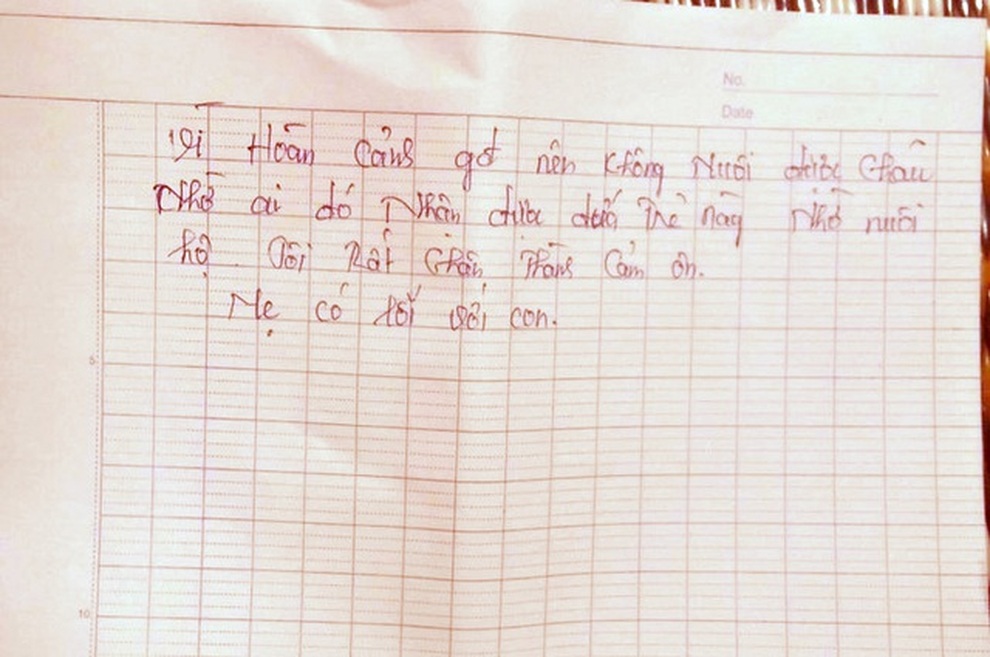 No.
Date
Vì Hoàn Cảnh gđ nên Không Nuôi được Cháu
Nhờ ai đó Nhận được đứa Trẻ này Nhờ nuôi
hộ Tôi Rất Chân Thành Cảm ơn.
Mẹ có lỗi với con.
5
10